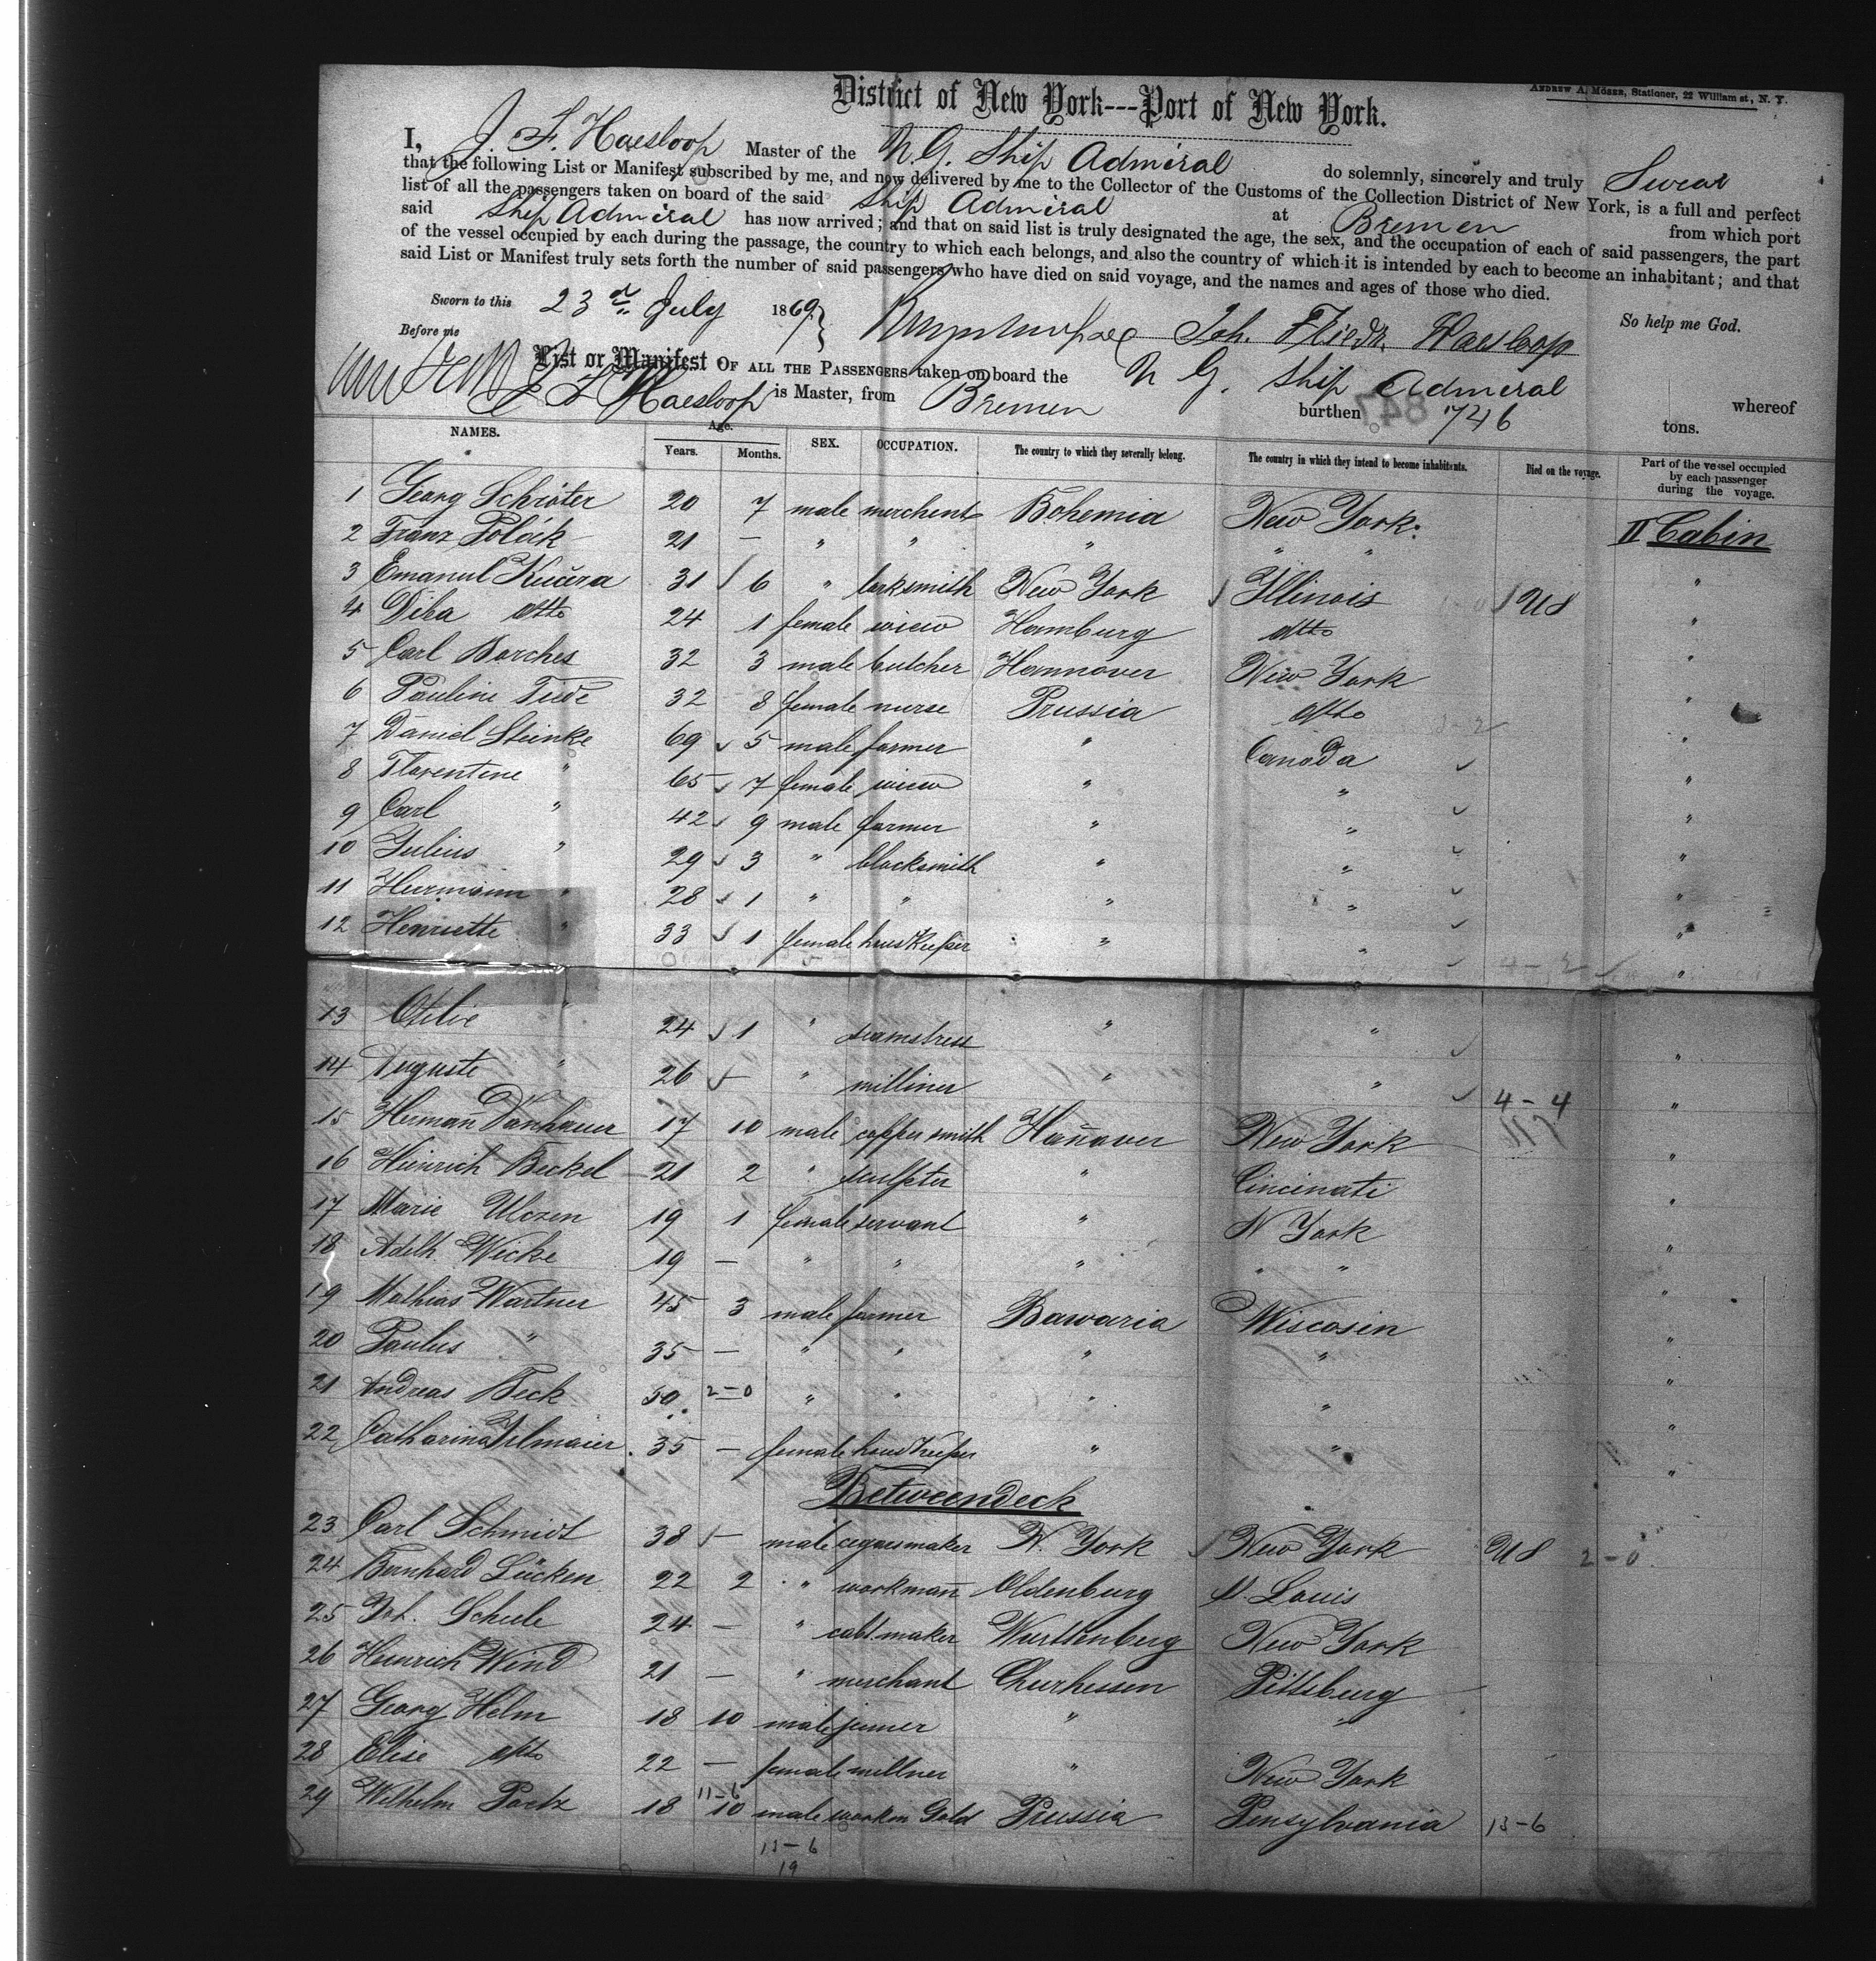 District of New York---Port of New York.
ANDREW A. MOSER, Stationer, 22 William st., N. Y.
I, J. F. Haesloop Master of the N. G. Ship Admiral do solemnly, sincerely and truly Swear
that the following List or Manifest subscribed by me, and now delivered by me to the Collector of the Customs of the Collection District of New York, is a full and perfect
list of all the passengers taken on board of the said Ship Admiral at Bremen from which port
said Ship Admiral has now arrived; and that on said list is truly designated the age, the sex, and the occupation of each of said passengers, the part
of the vessel occupied by each during the passage, the country to which each belongs, and also the country of which it is intended by each to become an inhabitant; and that
said List or Manifest truly sets forth the number of said passengers who have died on said voyage, and the names and ages of those who died.
Sworn to this 23rd July 1869 Joh. Friedr. Haesloop So help me God.
Before me
List or Manifest OF ALL THE PASSENGERS taken on board the N G. Ship Admiral whereof
J F Haesloop is Master, from Bremen burthen 746 tons.
847
NAMES. Age. Years. Months. SEX. OCCUPATION. The country to which they severally belong. The country in which they intend to become inhabitants. Died on the voyage. Part of the vessel occupied by each passenger during the voyage.
1 Georg Schröter 20 7 male merchent Bohemia New York. II Cabin
2 Franz Poläck 21 — " " " " " "
3 Emanul Kučera 31 6 " locksmith New York Illinois US "
4 Diba dtto 24 1 female wiew Hamburg dtto "
5 Carl Borches 32 3 male butcher Hannover New York "
6 Pauline Tiede 32 8 female nurse Prussia dtto "
7 Daniel Steinke 69 5 male farmer " Canada "
8 Florentine " 65 7 female wiew " " "
9 Carl " 42 9 male farmer " " "
10 Julius " 29 3 " blacksmith " " "
11 Hermann " 28 1 " " " " "
12 Henriette " 33 1 female houskeeper " " "
13 Otilie " 24 1 " seamstress " " "
14 Auguste " 26 — " milliner " " 4-4 "
15 Herman Danhauer 17 10 male coppersmith Hañover New York "
16 Heinrich Beckel 21 2 " sculpter " Cincinati "
17 Marie Ulozen 19 1 female servant " N York "
18 Adelh. Wicke 19 — " " " " " "
19 Mathias Wartner 45 3 male farmer Bawaria Wiscosin "
20 Paulus " 35 — " " " " "
21 Andreas Beck 50 2-0 " " " " "
22 Catharina Irlmaier 35 — female houskeeper " " "
Betweendeck
23 Carl Schmidt 38 — male cegarsmaker N. York New York US 2-0
24 Bernhard Lücken 22 2 " workmañ Oldenburg St. Louis
25 Joh. Scheele 24 — " cabt.maker Wurttenberg New York
26 Heinrich Wind 21 — " merchant Churhessen Pittsburg
27 Georg Helm 18 10 male joiner " "
28 Elise dtto 22 — female millner " New York
29 Wilhelm Poetz 18 10 male work in Gold Prussia Pensylvania 13-6
11-6
13-6
19